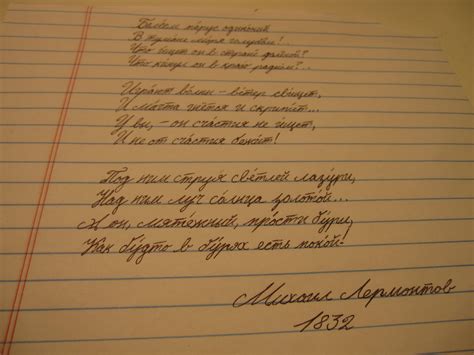 Беле́ет па́рус одино́кий
В тума́не мо́ря голубо́м!..
Что и́щет он в стране́ далёкой?
Что ки́нул он в краю́ родно́м?..
Игра́ют во́лны – ве́тер сви́щет,
И ма́чта гнётся и скрипи́т...
Увы, – он сча́стия не и́щет,
И не от сча́стия бежи́т!
Под ним струя́ светле́й лазу́ри,
Над ним луч со́лнца золото́й...
А он, мяте́жный, про́сти бу́ри,
Как бу́дто в бу́рях есть поко́й!
Михаил Лермонтов
1832